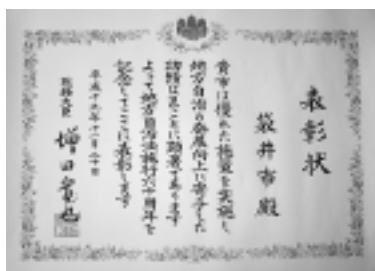 表彰状
袋井市殿
貴市は優れた施策を実施し
地方自治の発展向上に寄与した
功績はまことに顕著であります
よって地方自治法施行六十周年を
記念してここに表彰します
平成十九年十一月二十日
総務大臣 増田寛也